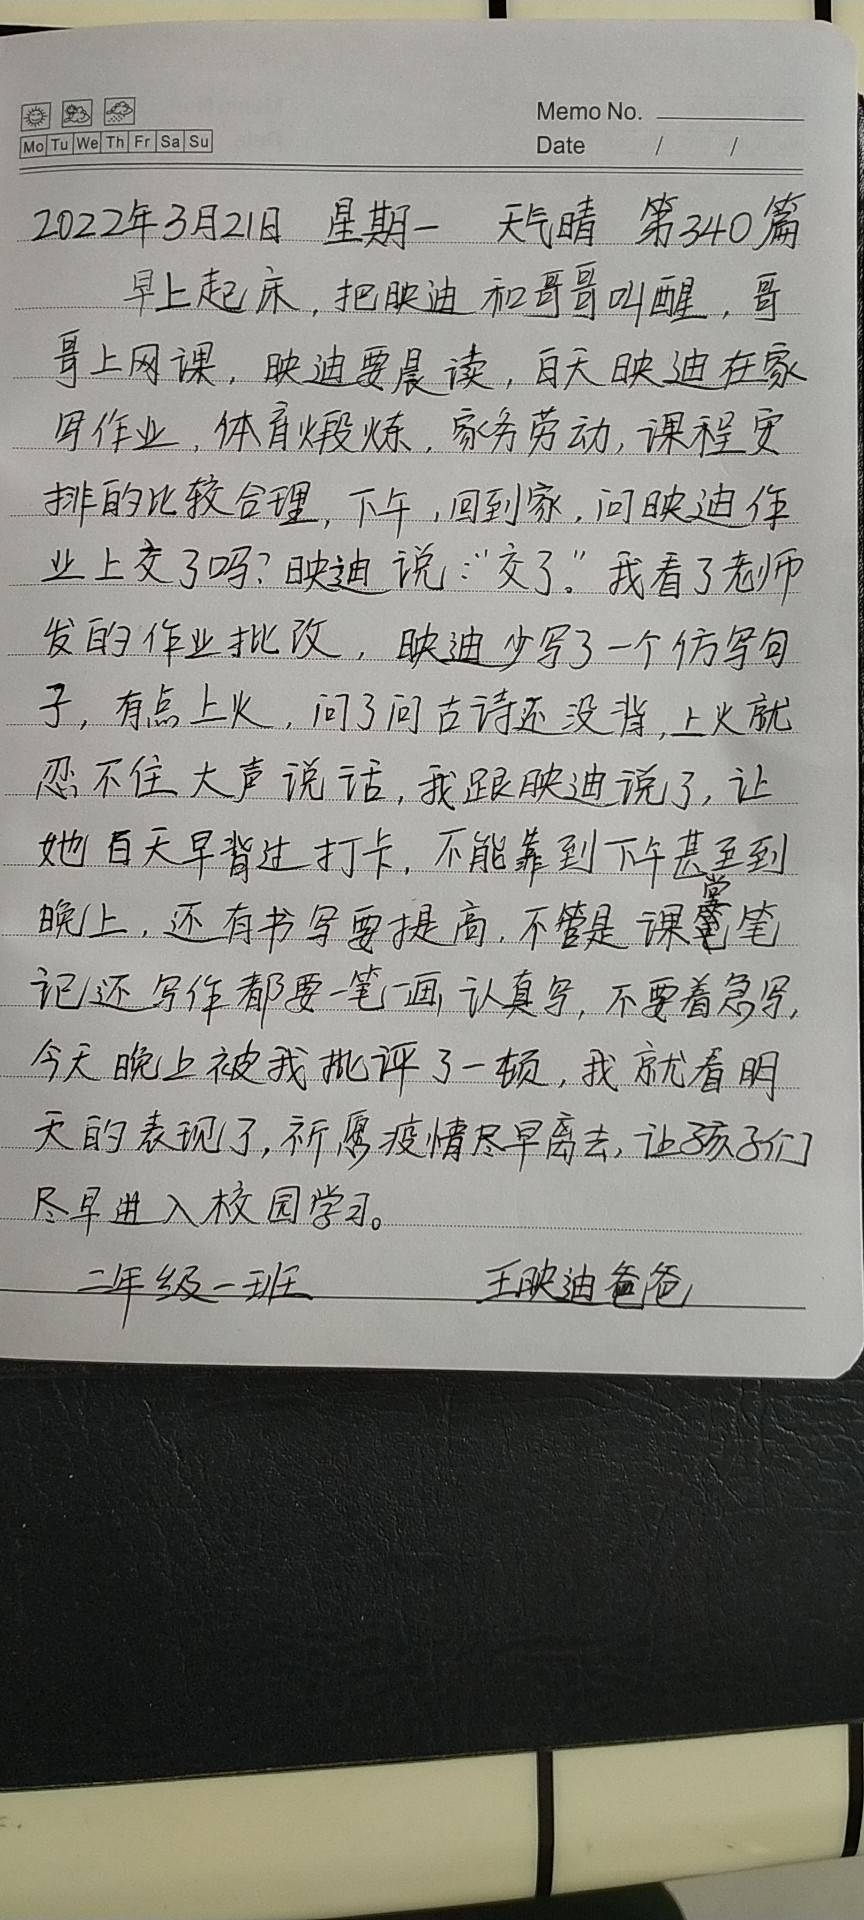 Memo No.
Mo Tu We Th Fr Sa Su
Date / /
2022年3月21日 星期一 天气晴 第340篇
早上起床，把映迪和哥哥叫醒，哥
哥上网课，映迪要晨读，白天映迪在家
写作业，体育煅炼，家务劳动，课程安
排的比较合理，下午，回到家，问映迪作
业上交了吗？映迪说："交了。"我看了老师
发的作业批改，映迪少写了一个仿写句
子，有点上火，问了问古诗还没背，上火就
忍不住大声说话，我跟映迪说了，让
她白天早背过打卡，不能靠到下午甚至到
晚上，还有书写要提高，不管是课堂笔
记还写作都要一笔一画认真写，不要着急写，
今天晚上被我批评了一顿，我就看明
天的表现了，祈愿疫情尽早离去，让孩子们
尽早进入校园学习。
二年级一班 王映迪爸爸